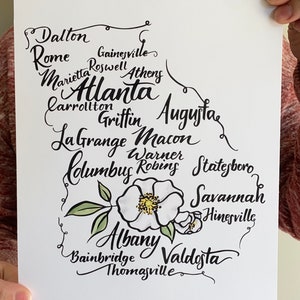 Dalton
Rome Gainesville
Roswell
Marietta Athens
Atlanta
Carrollton
Griffin Augusta
LaGrange Macon
Warner
Columbus Robins Statesboro
Savannah
Hinesville
Albany
Bainbridge Valdosta
Thomasville